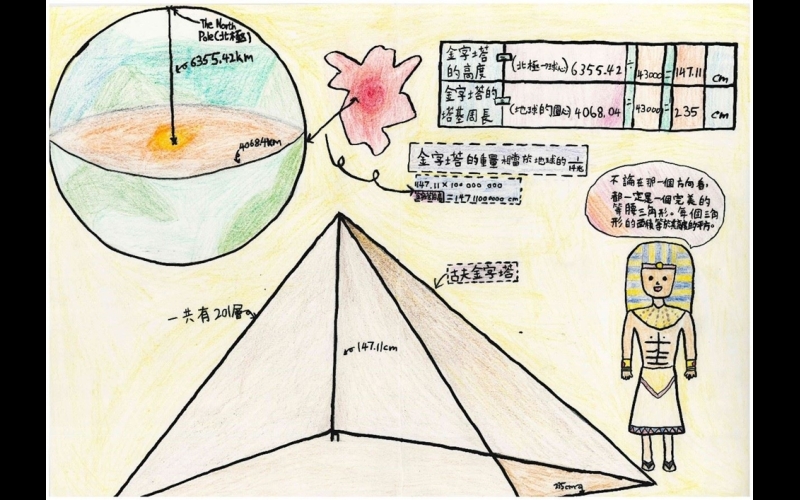 The North
Pole(北極)
6355.42km
4068.04km
金字塔的高度 = (北極→球心) 6355.42 ÷ 43000 = 147.11 cm
金字塔的塔基周長 = (地球的圓心) 4068.04 ÷ 43000 = 235 cm
金字塔的重量相當於地球的
147.11 × 100 000 000
= 14711000000 cm
不論在那一個方向看,
都一定是一個完美的
等腰三角形。每個三角
形的面積等於其高的平方。
古夫金字塔
一共有201層。
147.11cm